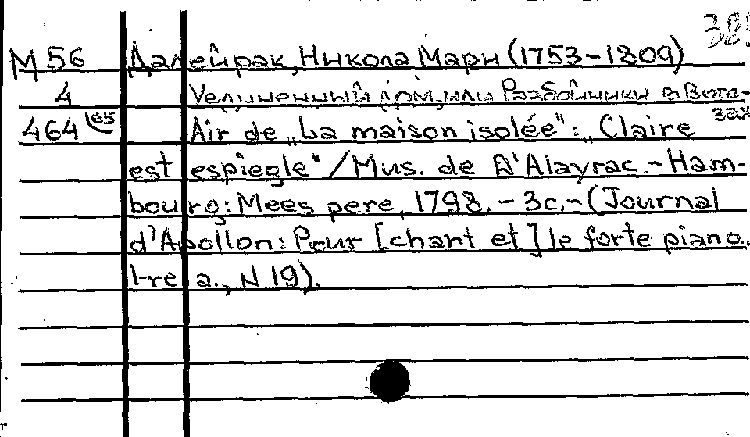 M 56 Далейрак, Никола Мари (1753-1809)
4 Уединенный дом, или Разбойники в Вога-
464 Air de „La maison isolée": „Claire зах
est espiegle" /Mus. de D'Alayrac.-Ham-
bourg: Mees pere, 1798.-3c.-(Journal
d'Apollon: Pour [chant et] le forte piano.
1-re a., N 19).